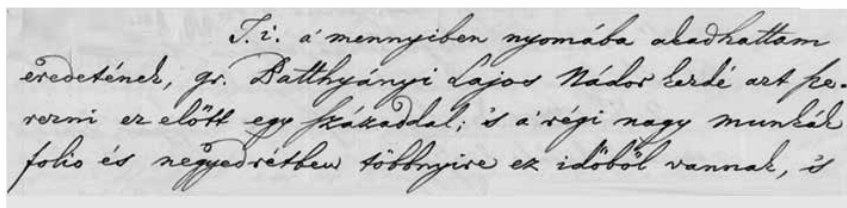 T. i. a' mennyiben nyomába akadhattam
eredetének, gr. Batthyányi Lajos Nádor kezdé azt sze-
rezni ez előtt egy századdal; 's a' régi nagy munkák
folio és negyedrétben többnyire ez időből vannak, 's